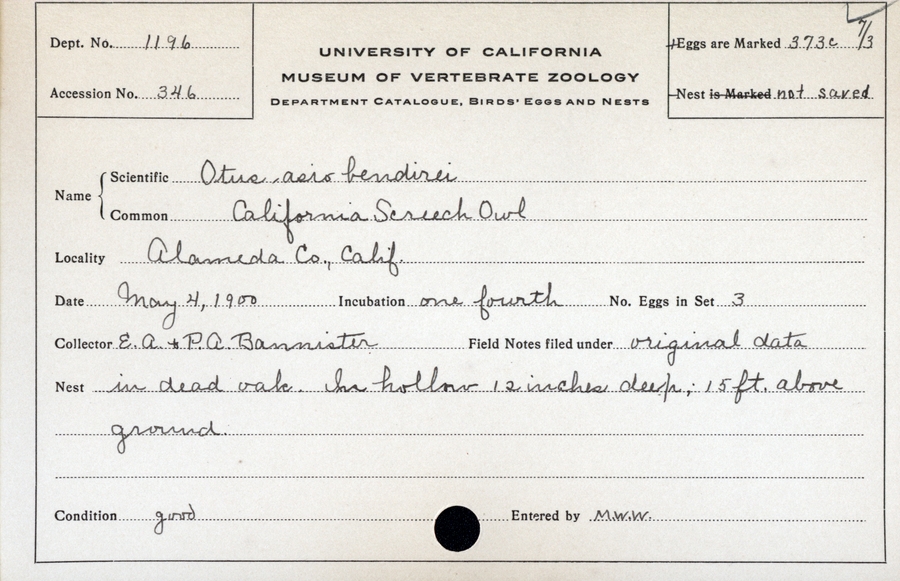 Dept. No. 1196
Accession No. 346
UNIVERSITY OF CALIFORNIA
MUSEUM OF VERTEBRATE ZOOLOGY
DEPARTMENT CATALOGUE, BIRDS' EGGS AND NESTS
Eggs are Marked 373c 7/3
Nest is Marked not saved
Name
Scientific Otus asio bendirei
Common California Screech Owl
Locality Alameda Co., Calif.
Date May 4, 1900 Incubation one fourth No. Eggs in Set 3
Collector E. A. & P. A. Bannister Field Notes filed under original data
Nest in dead oak. In hollow 12 inches deep; 15 ft. above
ground.
Condition good Entered by M.W.W.